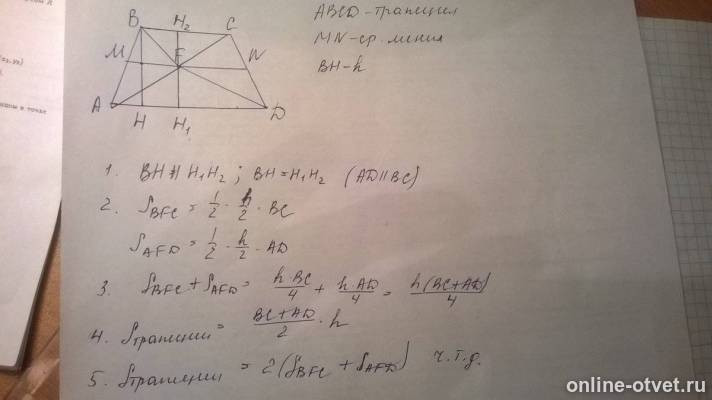 B H₂ C
M F N
A H H₁ D
ABCD - трапеция
MN - ср. линия
BH - h
1. BH ∥ H₁H₂ ; BH = H₁H₂ (AD ∥ BC)
2. S_BFC = 1/2 · h/2 · BC
S_AFD = 1/2 · h/2 · AD
3. S_BFC + S_AFD = h·BC/4 + h·AD/4 = h(BC+AD)/4
4. Sтрапеции = BC+AD/2 · h
5. Sтрапеции = 2(S_BFC + S_AFD) ч.т.д.
online-otvet.ru